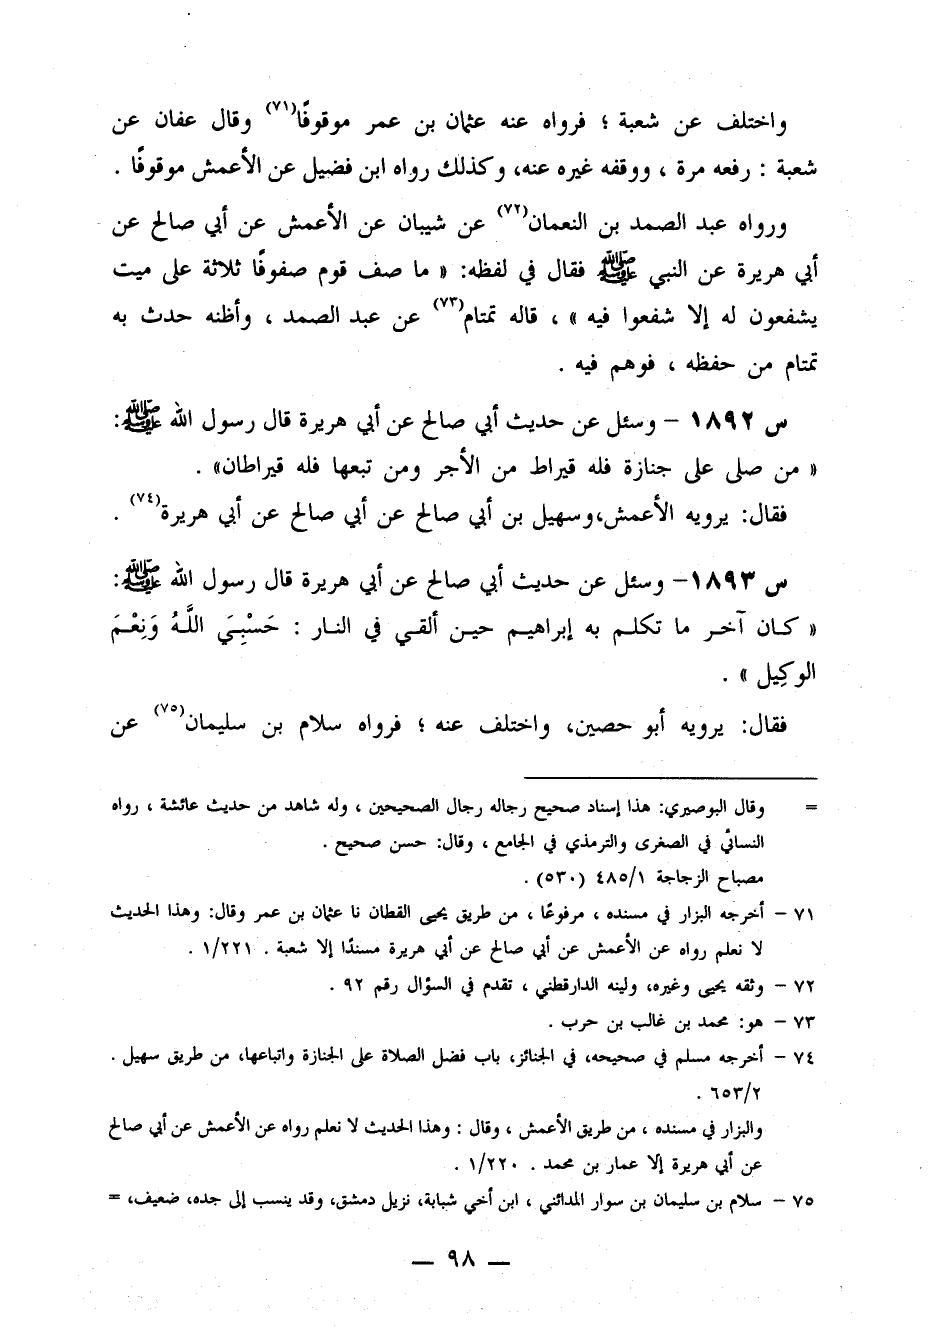 واختلف عن شعبة ؛ فرواه عنه عثمان بن عمر موقوفًا(٧١) وقال عفان عن
شعبة : رفعه مرة ، ووقفه غيره عنه، وكذلك رواه ابن فضيل عن الأعمش موقوفًا .
ورواه عبد الصمد بن النعمان(٧٢) عن شيبان عن الأعمش عن أبي صالح عن
أبي هريرة عن النبي ﷺ فقال في لفظه: « ما صف قوم صفوفًا ثلاثة على ميت
يشفعون له إلا شفعوا فيه » ، قاله تمتام(٧٣) عن عبد الصمد ، وأظنه حدث به
تمتام من حفظه ، فوهم فيه .
س ١٨٩٢ – وسئل عن حديث أبي صالح عن أبي هريرة قال رسول الله ﷺ:
« من صلى على جنازة فله قيراط من الأجر ومن تبعها فله قيراطان» .
فقال: يرويه الأعمش،وسهيل بن أبي صالح عن أبي صالح عن أبي هريرة(٧٤) .
س ١٨٩٣– وسئل عن حديث أبي صالح عن أبي هريرة قال رسول الله ﷺ:
« كـان آخـر ما تكلـم به إبراهيـم حيـن ألقـي في النـار : حَسْبِـيَ اللَّـهُ وَنِعْـمَ
الوكِيل » .
فقال: يرويه أبو حصين، واختلف عنه ؛ فرواه سلام بن سليمان(٧٥) عن
= وقال البوصيري: هذا إسناد صحيح رجاله رجال الصحيحين ، وله شاهد من حديث عائشة ، رواه
النسائي في الصغرى والترمذي في الجامع ، وقال: حسن صحيح .
مصباح الزجاجة ٤٨٥/١ (٥٣٠) .
٧١ – أخرجه البزار في مسنده ، مرفوعًا ، من طريق يحيى القطان نا عثمان بن عمر وقال: وهذا الحديث
لا نعلم رواه عن الأعمش عن أبي صالح عن أبي هريرة مسندًا إلا شعبة . ١/٢٢١ .
٧٢ – وثقه يحيى وغيره، ولينه الدارقطني ، تقدم في السؤال رقم ٩٢ .
٧٣ – هو: محمد بن غالب بن حرب .
٧٤ – أخرجه مسلم في صحيحه، في الجنائز، باب فضل الصلاة على الجنازة واتباعها، من طريق سهيل .
٦٥٣/٢ .
والبزار في مسنده ، من طريق الأعمش ، وقال : وهذا الحديث لا نعلم رواه عن الأعمش عن أبي صالح
عن أبي هريرة إلا عمار بن محمد . ١/٢٢٠ .
٧٥ – سلام بن سليمان بن سوار المدائني ، ابن أخي شبابة، نزيل دمشق، وقد ينسب إلى جده، ضعيف، =
— ٩٨ —